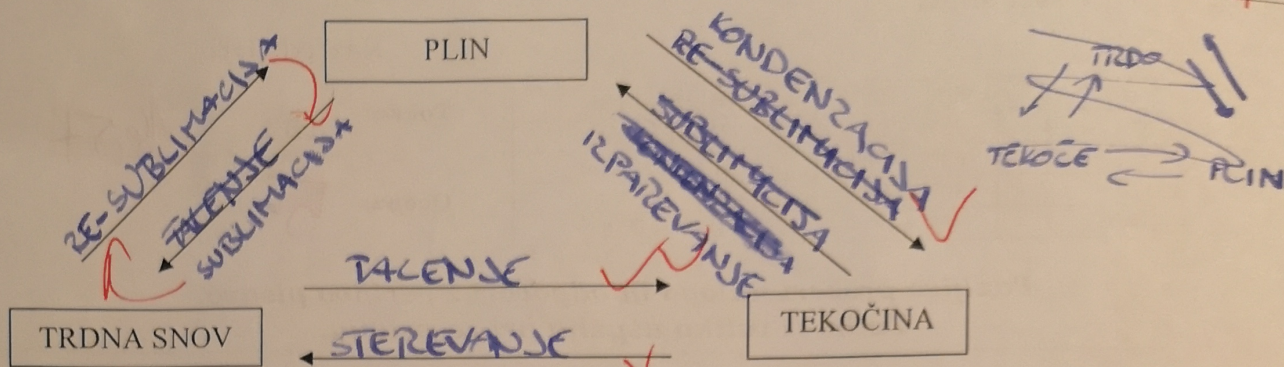 PLIN
RE-SUBLIMACIJA
TALENJE
SUBLIMACIJA
KONDENZACIJA
RE-SUBLIMACIJA
SUBLIMACIJA
KONDENZACIJA
IZPAREVANJE
TALENJE
STEREVANJE
TRDNA SNOV
TEKOČINA
TRDO
TEKOČE
PLIN